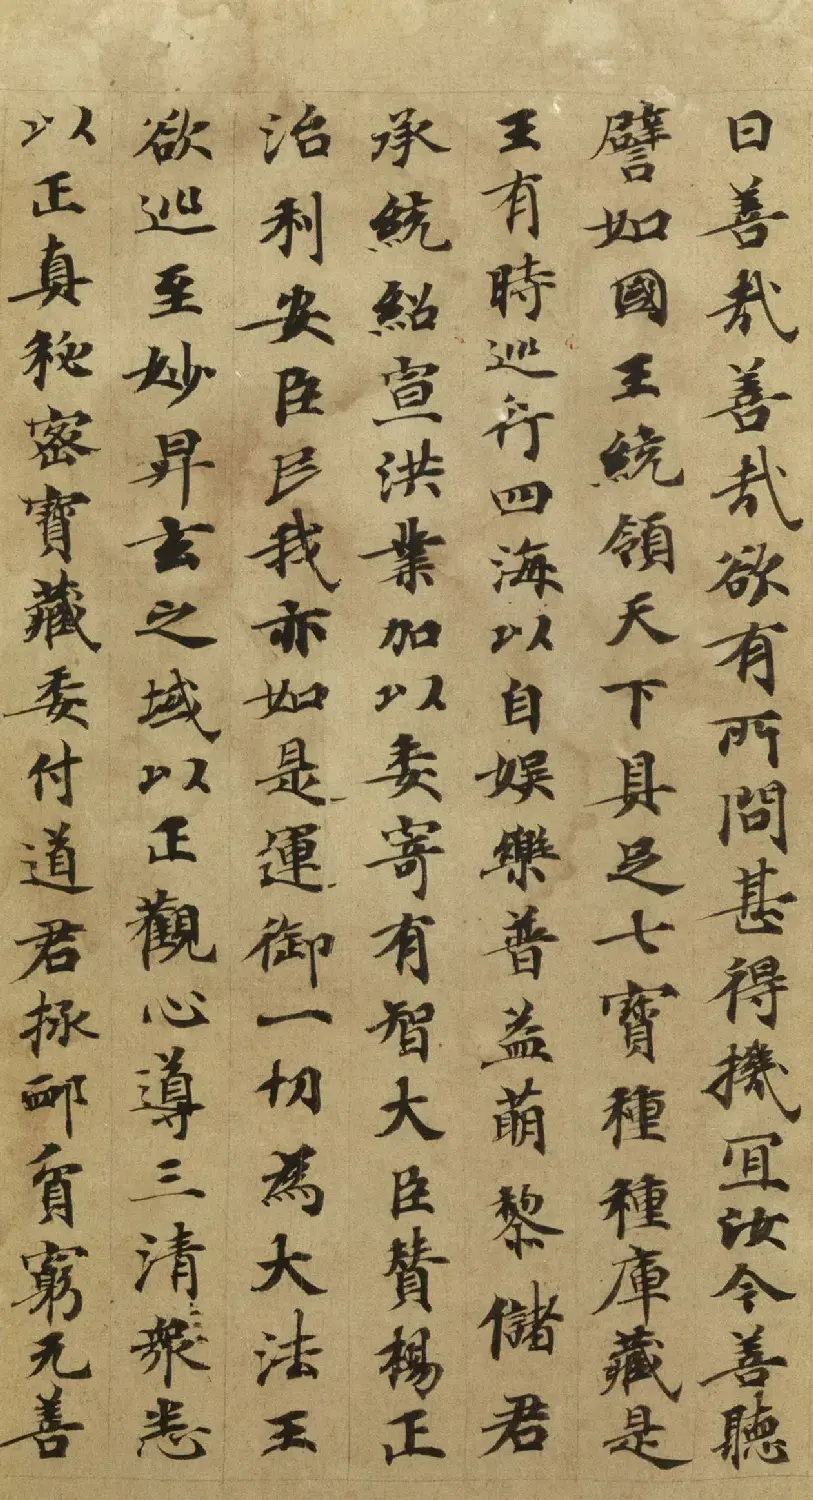 曰善哉善哉欲有所問甚得機冝汝今善聽
譬如國王統領天下具足七寶種種庫藏是
王有時巡行四海以自娱樂普益萌黎儲君
承統紹宣洪業加以委寄有智大臣賛楊正
治利安臣民我亦如是運御一切為大法王
欲巡至妙昇玄之域以正觀心導三清衆悉
以正真秘密寶藏委付道君拯邺貧窮无善